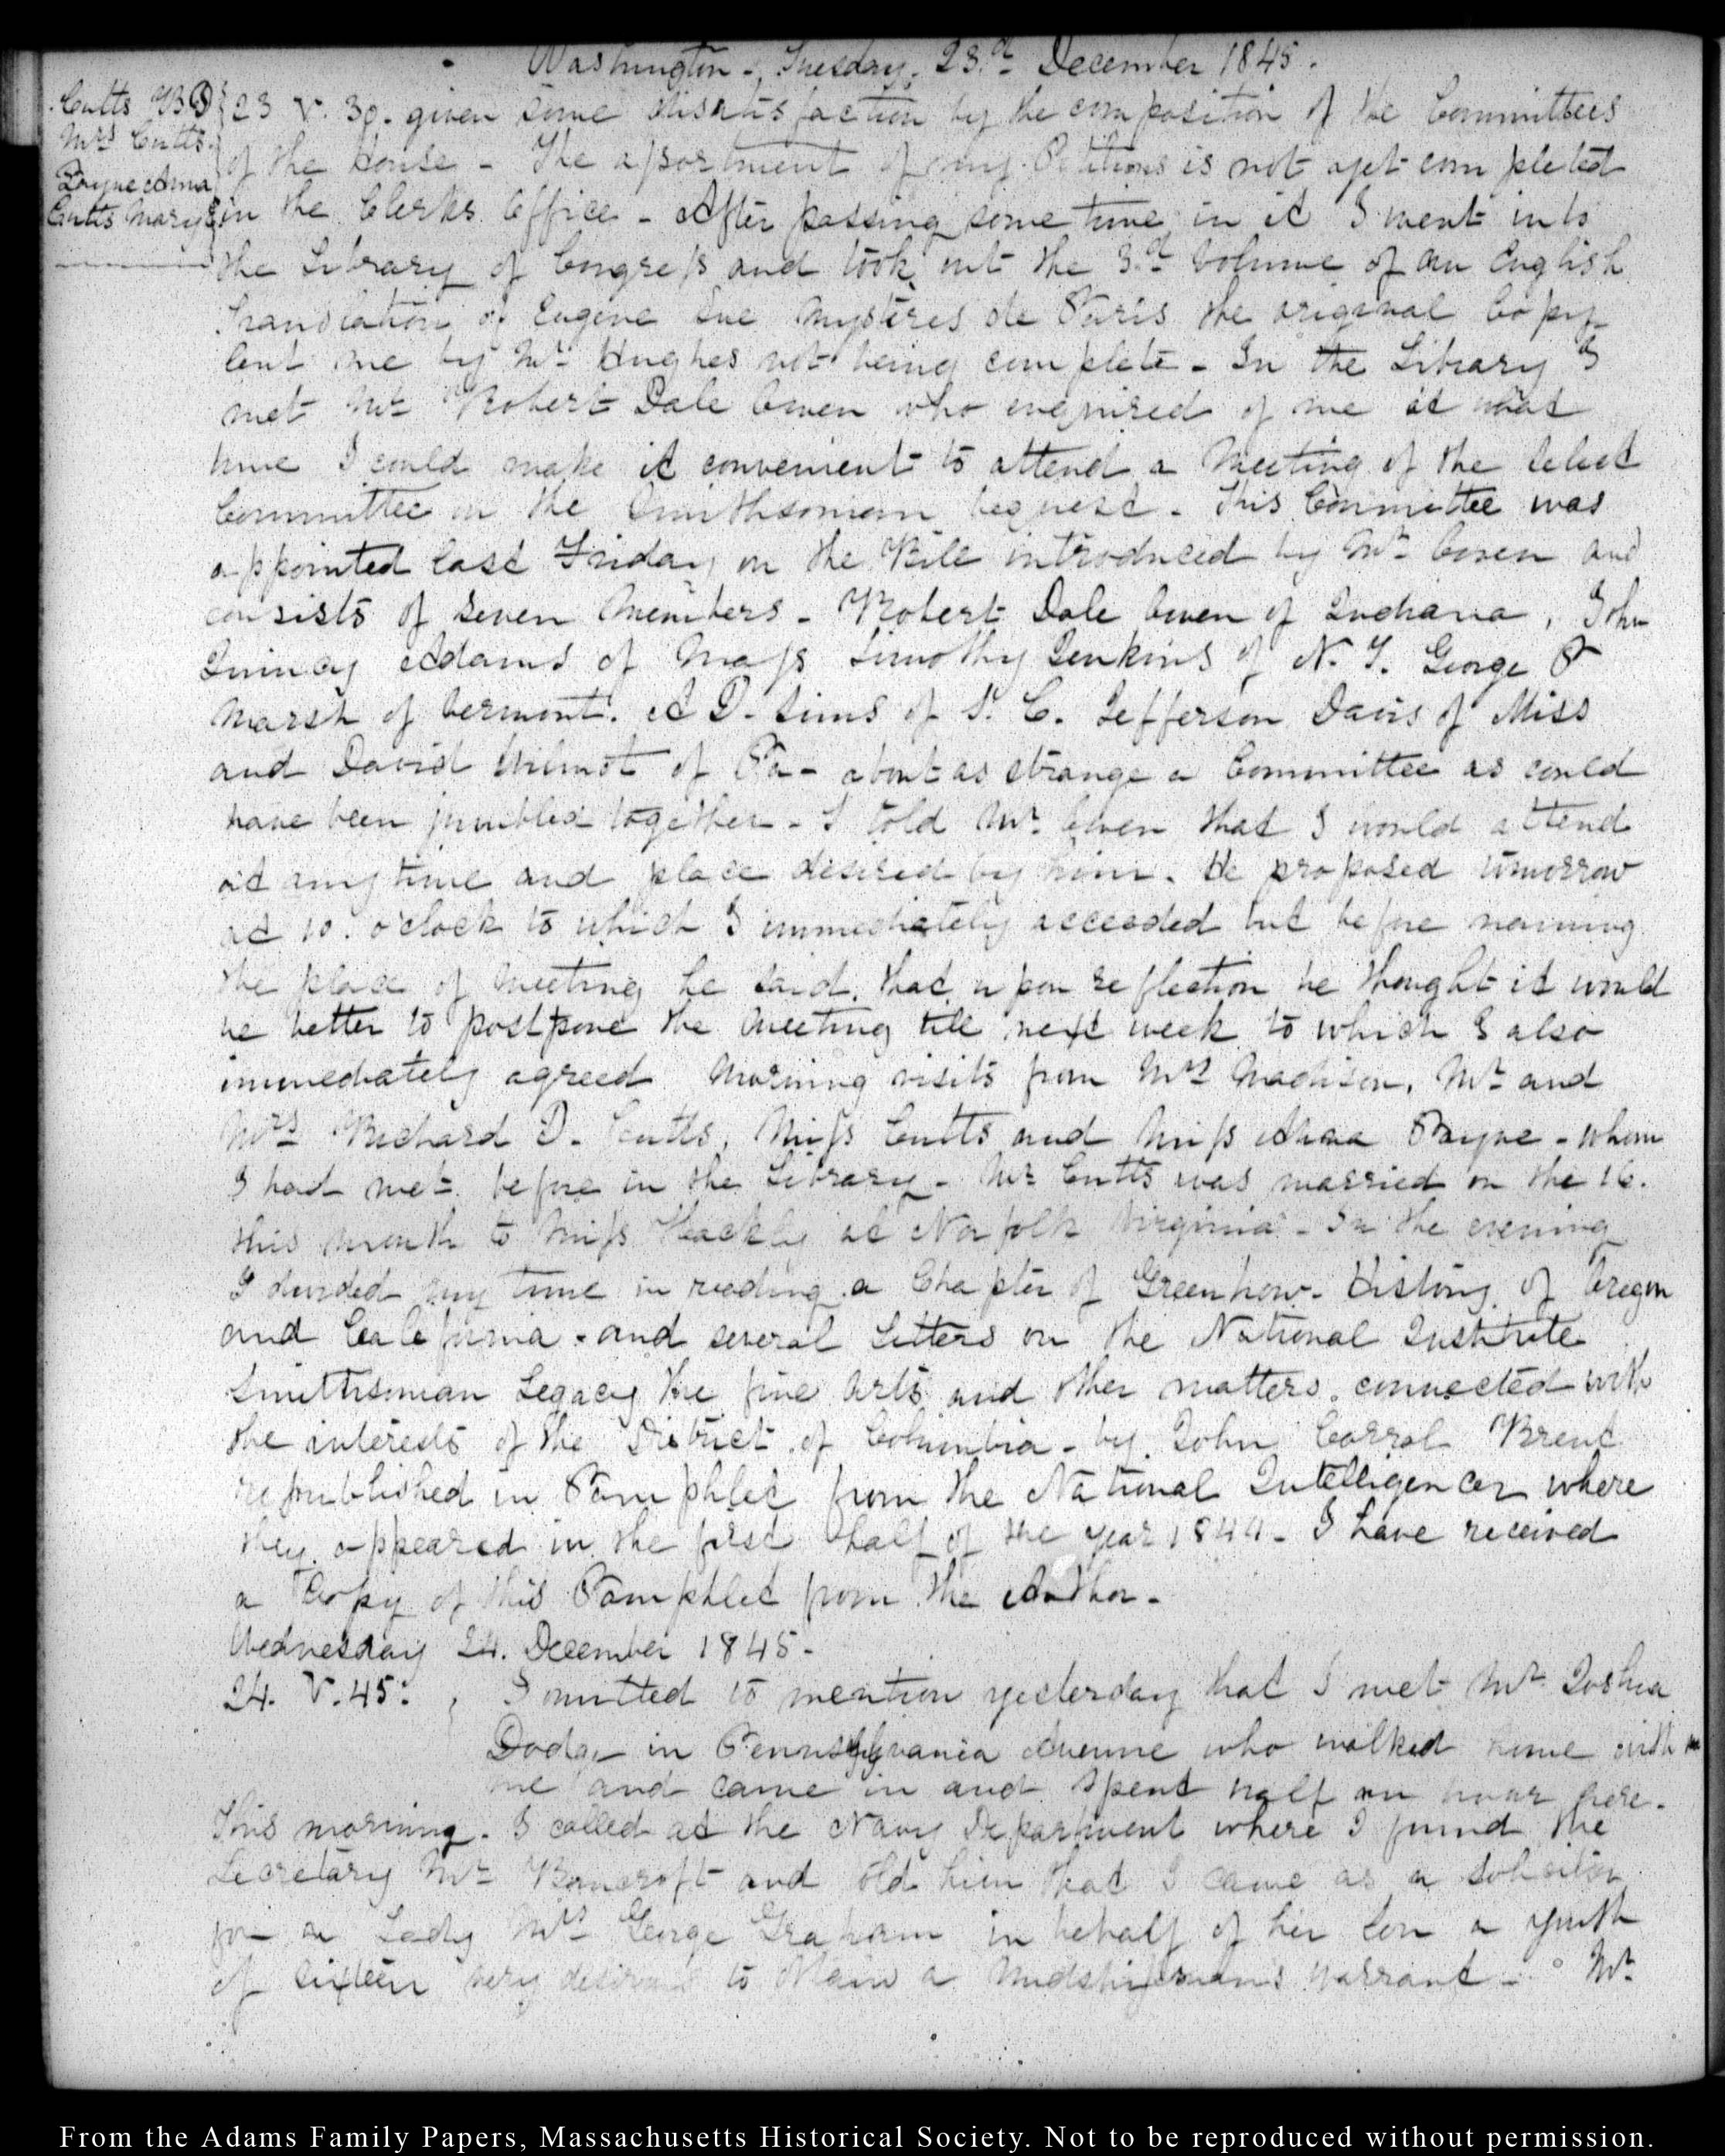 Washington, Tuesday. 23.d December 1845.
Cutts R D
Mrs Cutts.
Payne Anna
Cutts Mary E
23 V. 30. given some dissatisfaction by the composition of the Committees
of the House - The assortment of my Petitions is not yet completed
in the Clerks Office - After passing some time in it I went into
the Library of Congress and took out the 3.d Volume of an English
Translation of Eugene Sue Mystères de Paris the original Copy
lent me by Mr Hughes not being complete - In the Library I
met Mr Robert Dale Owen who enquired of me at what
time I could make it convenient to attend a Meeting of the Select
Committee on the Smithsonian bequest. This Committee was
appointed last Friday on the Bill introduced by Mr Owen and
consists of seven Members - Robert Dale Owen of Indiana, John
Quincy Adams of Mass Timothy Jenkins of N. Y. George P
Marsh of Vermont. A D. Sims of S. C. Jefferson Davis of Miss
and David Wilmot of Pa - about as strange a Committee as could
have been jumbled together - I told Mr Owen that I would attend
at any time and place desired by him. He proposed tomorrow
at 10. o'clock to which I immediately acceeded but before naming
the place of Meeting he said, that upon reflection he thought it would
be better to postpone the Meeting till next week to which I also
immediately agreed Morning visits from Mrs Madison, Mr and
Mrs Richard D. Cutts, Miss Cutts and Miss Anna Payne - whom
I had met before in the Library - Mr Cutts was married on the 16.
this month to Miss Hackley at Norfolk Virginia - In the evening
I divided my time in reading a Chapter of Greenhow. History of Oregon
and California - and several Letters on the National Institute
Smithsonian Legacy the fine Arts and other matters connected with
the interests of the District of Columbia - by John Carrol Brent
republished in Pamphlet from the National Intelligencer where
they appeared in the first half of the year 1844 - I have received
a Copy of this Pamphlet from the Author -
Wednesday 24. December 1845 -
24. V. 45. I omitted to mention yesterday that I met Mr Joshua
Dodge in Pennsylvania Avenue who walked home with
me and came in and spent half an hour here.
This morning. I called at the Navy Department where I found the
Secretary Mr Bancroft and told him that I came as a Solicitor
for a Lady Mrs George Graham in behalf of her Son a youth
of sixteen very desirous to obtain a Midshipman's Warrant - Mr
From the Adams Family Papers, Massachusetts Historical Society. Not to be reproduced without permission.